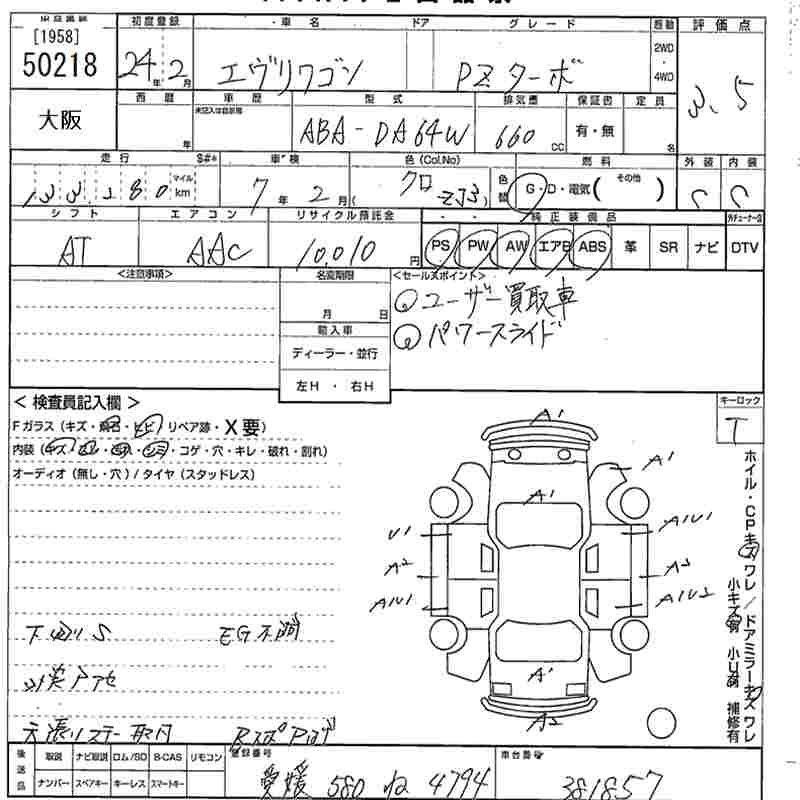 [1958]
50218
大阪
初度登録 車名 ドア グレード 駆動 評価点
24年2月 エヴリワゴン PZターボ 2WD・4WD 3.5
西暦 車歴 型式 排気量 保証書 定員
年 ABA-DA64W 660 CC 有・無 名
走行 車検 色(Col.No) 燃料 外装 内装
133,280 マイル km 7年2月 クロ ZJ3 色替 G・D・電気( その他 ) C C
シフト エアコン リサイクル預託金 純正装備品
AT AAC 10,010円 PS PW AW エアB ABS 革 SR ナビ DTV
<注意事項> 名変期限 <セールスポイント>
月 日 ユーザー買取車
輸入車 パワースライド
ディーラー・並行
左H・右H
<検査員記入欄> キーロック
T
Fガラス(キズ・ ・ヒビ・リペア跡・X要)
内装(キズ・ ・コゲ・穴・キレ・破れ・割れ)
オーディオ(無し・穴)/タイヤ(スタッドレス)
A1
A1
A1
U1 A1U1
A2 A2
A1U1 A1U2
A1
A2
ホイル・CPキズワレ/ドアミラーキズワレ
小キズ有 小U有 補修有
下回りS EG不調
後送品 取説 ナビ取説 ロム/SD B-CAS リモコン 登録番号 車台番号
ナンバー スペアキー キーレス スマートキー 愛媛 580 ね 4794 381857